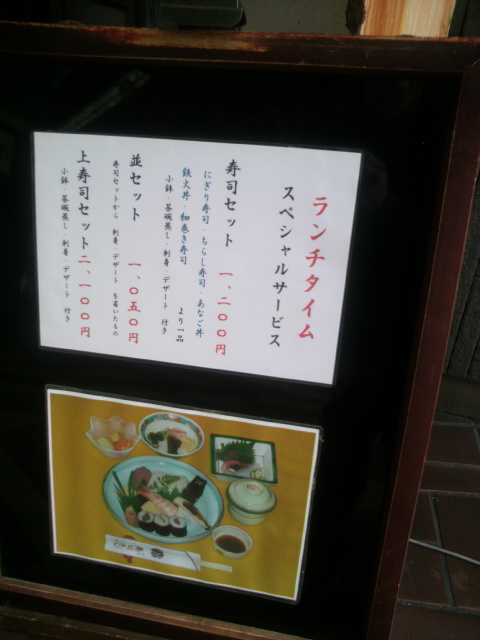 ランチタイム
スペシャルサービス
寿司セット 一、二〇〇円
にぎり寿司・ちらし寿司・あなご丼
鉄火丼・細巻き寿司 より一品
小鉢・茶碗蒸し・刺身・デザート 付き
並セット 一、〇五〇円
寿司セットから 刺身・デザート を省いたもの
上寿司セット 二、一〇〇円
小鉢・茶碗蒸し・刺身・デザート 付き